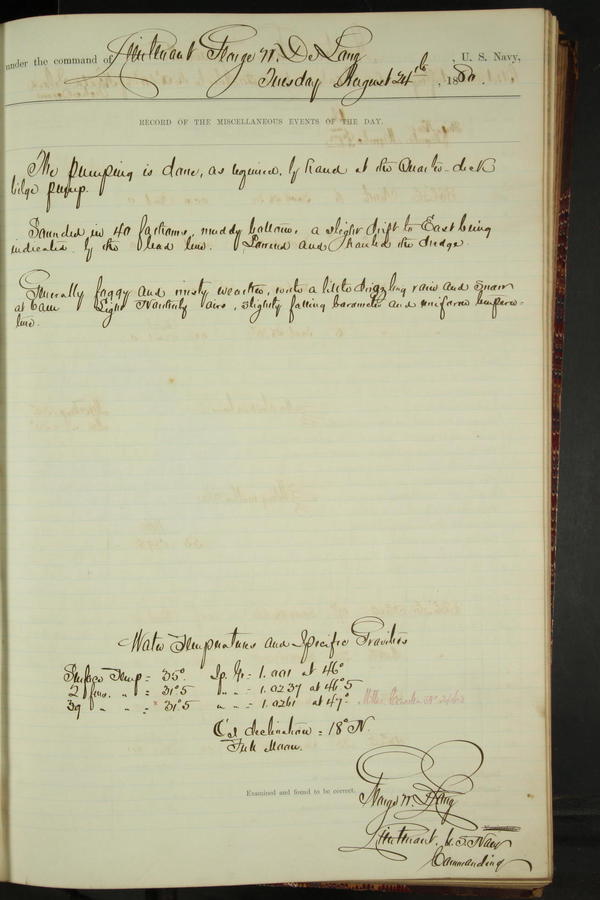 under the command of Lieutenant George W. De Long, U. S. Navy,
Tuesday August 24th, 1880.
RECORD OF THE MISCELLANEOUS EVENTS OF THE DAY.
The pumping is done, as required, by hand at the Quarter-deck
bilge pump.
Sounded in 40 fathoms, muddy bottom, a slight drift to East being
indicated by the lead line. Lowered and hauled the dredge.
Generally foggy and misty weather, with a little drizzling rain and snow
at 6 am Light Northerly airs, slightly falling barometer and uniform tempera-
ture.
Water Temperatures and Specific Gravities
Surface Temp = 35°. Sp. Gr = 1.001 at 46°
2 fms. " = 31°5 " " = 1.0237 at 46°5
39 " " = 31°5 " " = 1.0261 at 47°.
☾'s declination = 18° N.
Full Moon.
Examined and found to be correct.
George W. De Long
Lieutenant, U.S. Navy
Commanding